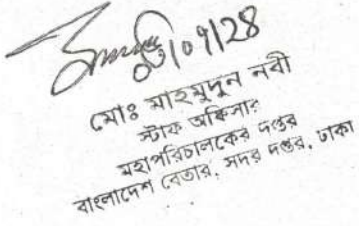 মোঃ মাহমুদুন নবী
স্টাফ অফিসার
মহাপরিচালকের দপ্তর
বাংলাদেশ বেতার, সদর দপ্তর, ঢাকা